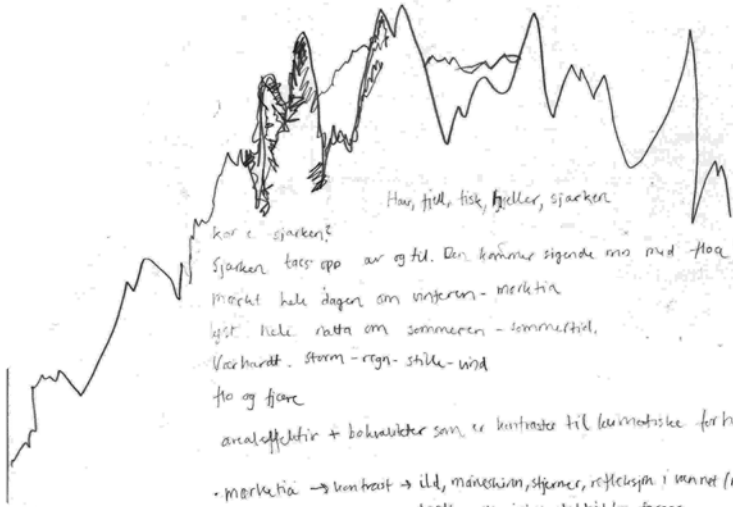 Hav, fjell, fisk, hjeller, sjarken
kor e sjarken?
Sjarken taes opp av og til. Den kommer sigende inn med floa
mørkt hele dagen om vinteren - mørketia
lyst hele natta om sommeren - sommertid.
Værhardt. storm - regn - stille - vind
flo og fjære
arealeffektiv + bokvaliteter som er kontraster til klimatiske forh
• mørketia → kontrast → ild, måneskinn, stjerner, refleksjon i vannet